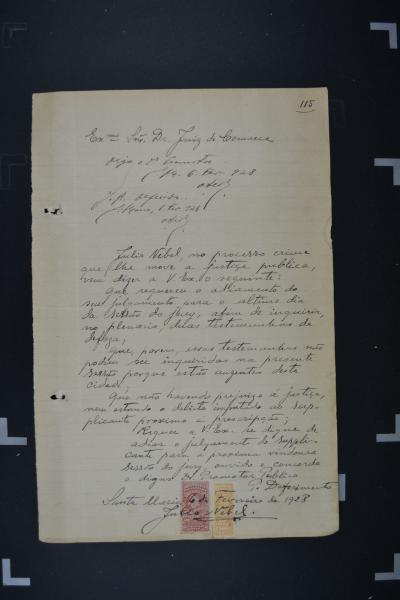 115
Exmo Snr. Dr. Juiz da Comarca
Seja o Dr Promotor.
6. Fev. 928
J. A. deferido.
6 Fev. 928
Julio Nebel, no processo crime
que lhe move a justiça publica,
vem dizer a V. Ex. o seguinte:
Que requereu o adiamento do
seu julgamento para o ultimo dia
da sessão do jury, afim de inquirir,
no plenario, duas testemunhas de
defeza;
Que, porem, essas testemunhas não
podem ser inqueridas na presente
sessão porque estão auzentes desta
cidade;
Que não havendo prejuizo á justiça,
nem estando o delicto imputado ao sup-
plicante proximo a prescripção;
Requer a V. Ex. se digne de
adiar o julgamento do suppli-
cante para a proxima vindoura
sessão do jury, ouvido e concorde
o digno Dr. Promotor Publico
P. Deferimento
Santa Maria, 6 de Fevereiro de 1928
Julio Nebel.